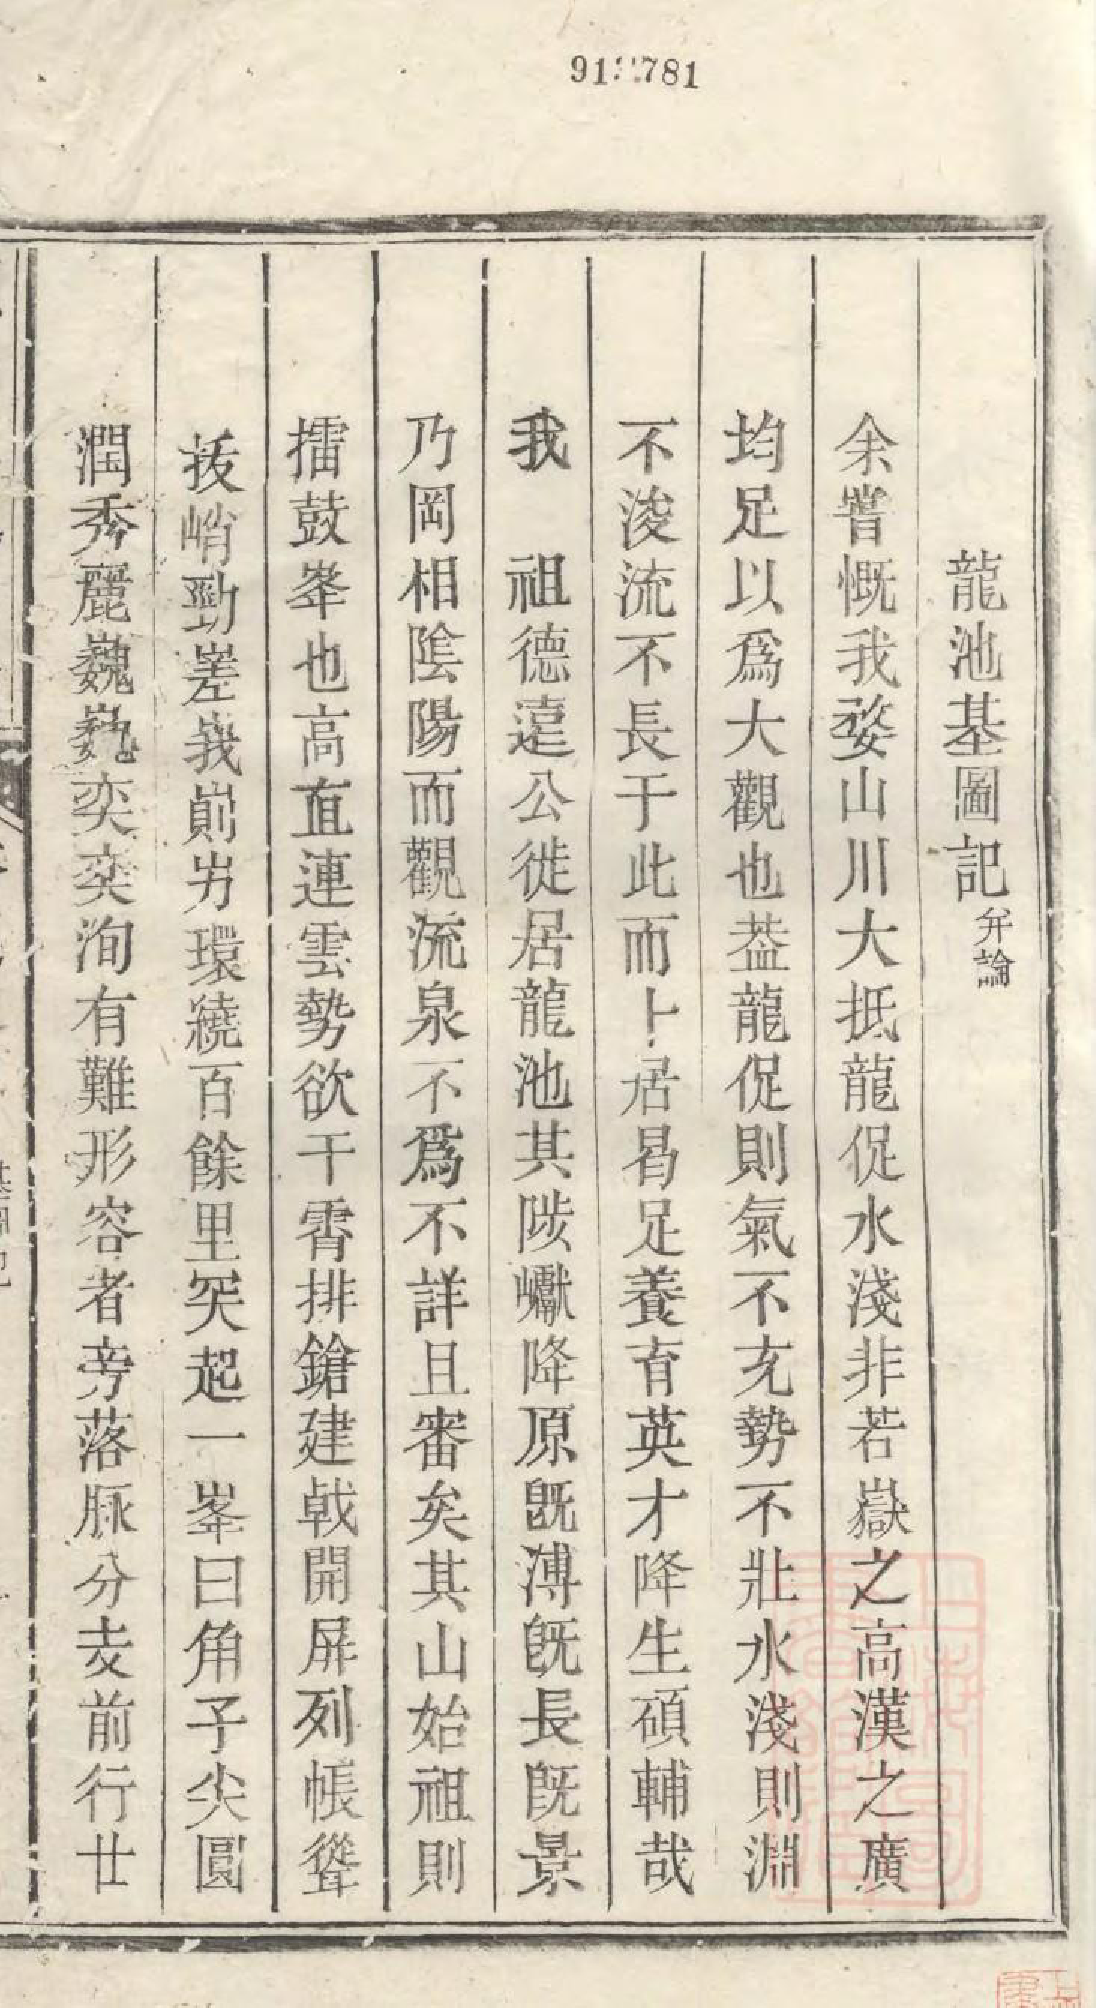 龍池基圖記弁論
余嘗慨我婺山川大抵龍促水淺非若嶽之高漢之廣
均足以爲大觀也葢龍促則氣不充勢不壯水淺則淵
不浚流不長于此而卜居曷足養育英才降生碩輔哉
我　祖德遠公徙居龍池其陟巘降原旣溥旣長旣景
乃岡相陰陽而觀流泉不爲不詳且審矣其山始祖則
擂鼓峯也高直連雲勢欲干霄排鎗建戟開屏列帳聳
拔峭勁嵳峩崱屴環繞百餘里突起一峯曰角子尖圓
潤秀麗巍巍奕奕洵有難形容者旁落脉分支前行廿